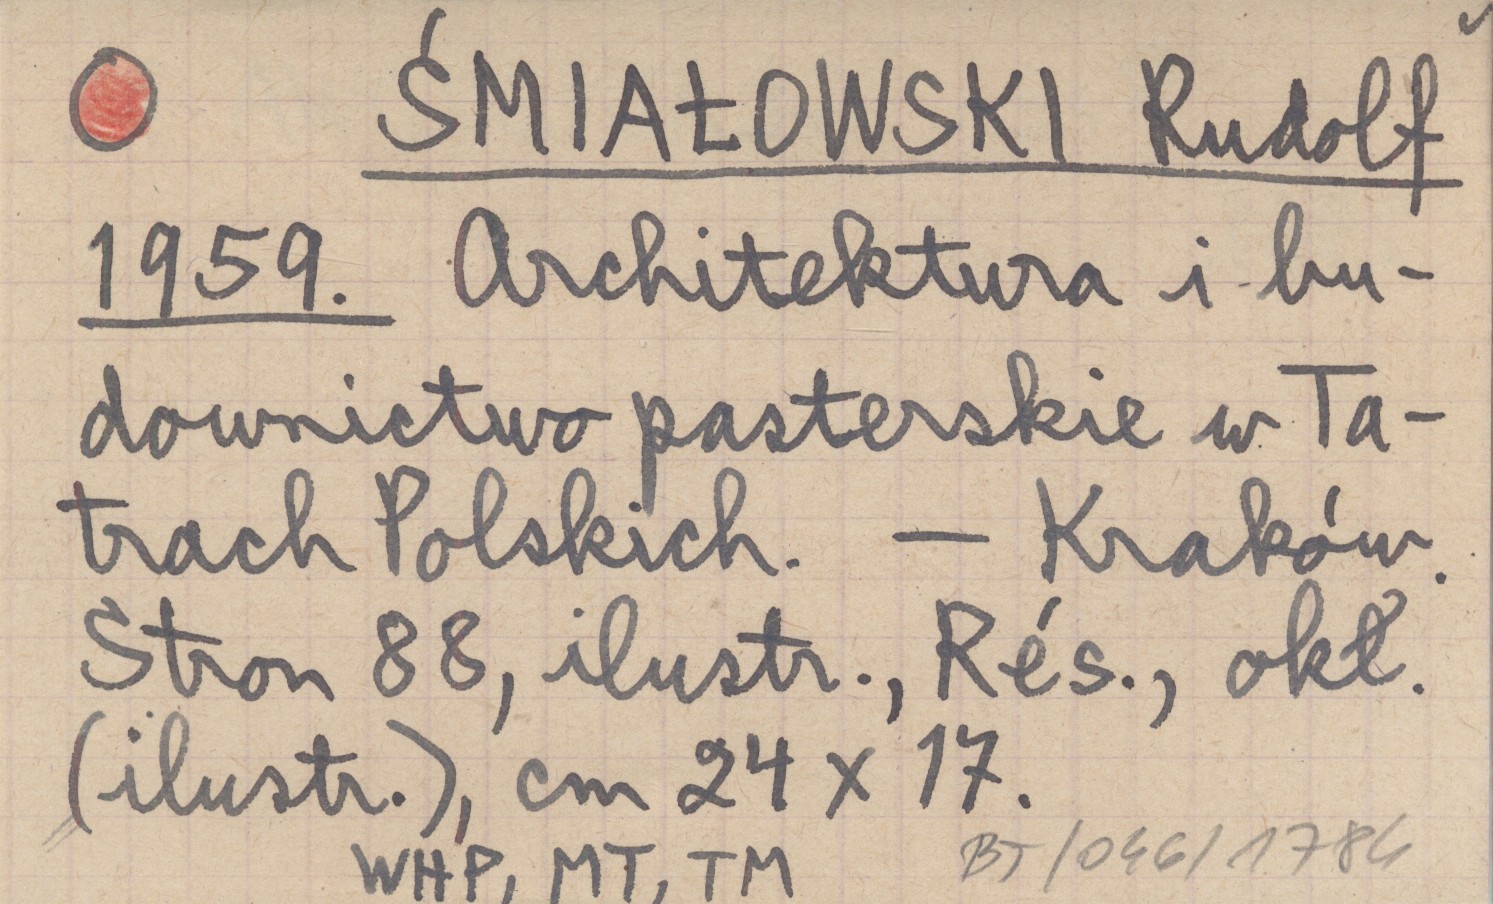 ŚMIAŁOWSKI Rudolf
1959. Architektura i bu-
downictwo pasterskie w Ta-
trach Polskich. — Kraków.
Stron 88, ilustr., Rés., okł.
(ilustr.), cm 24 x 17.
WHP, MT, TM
BT/046/1784